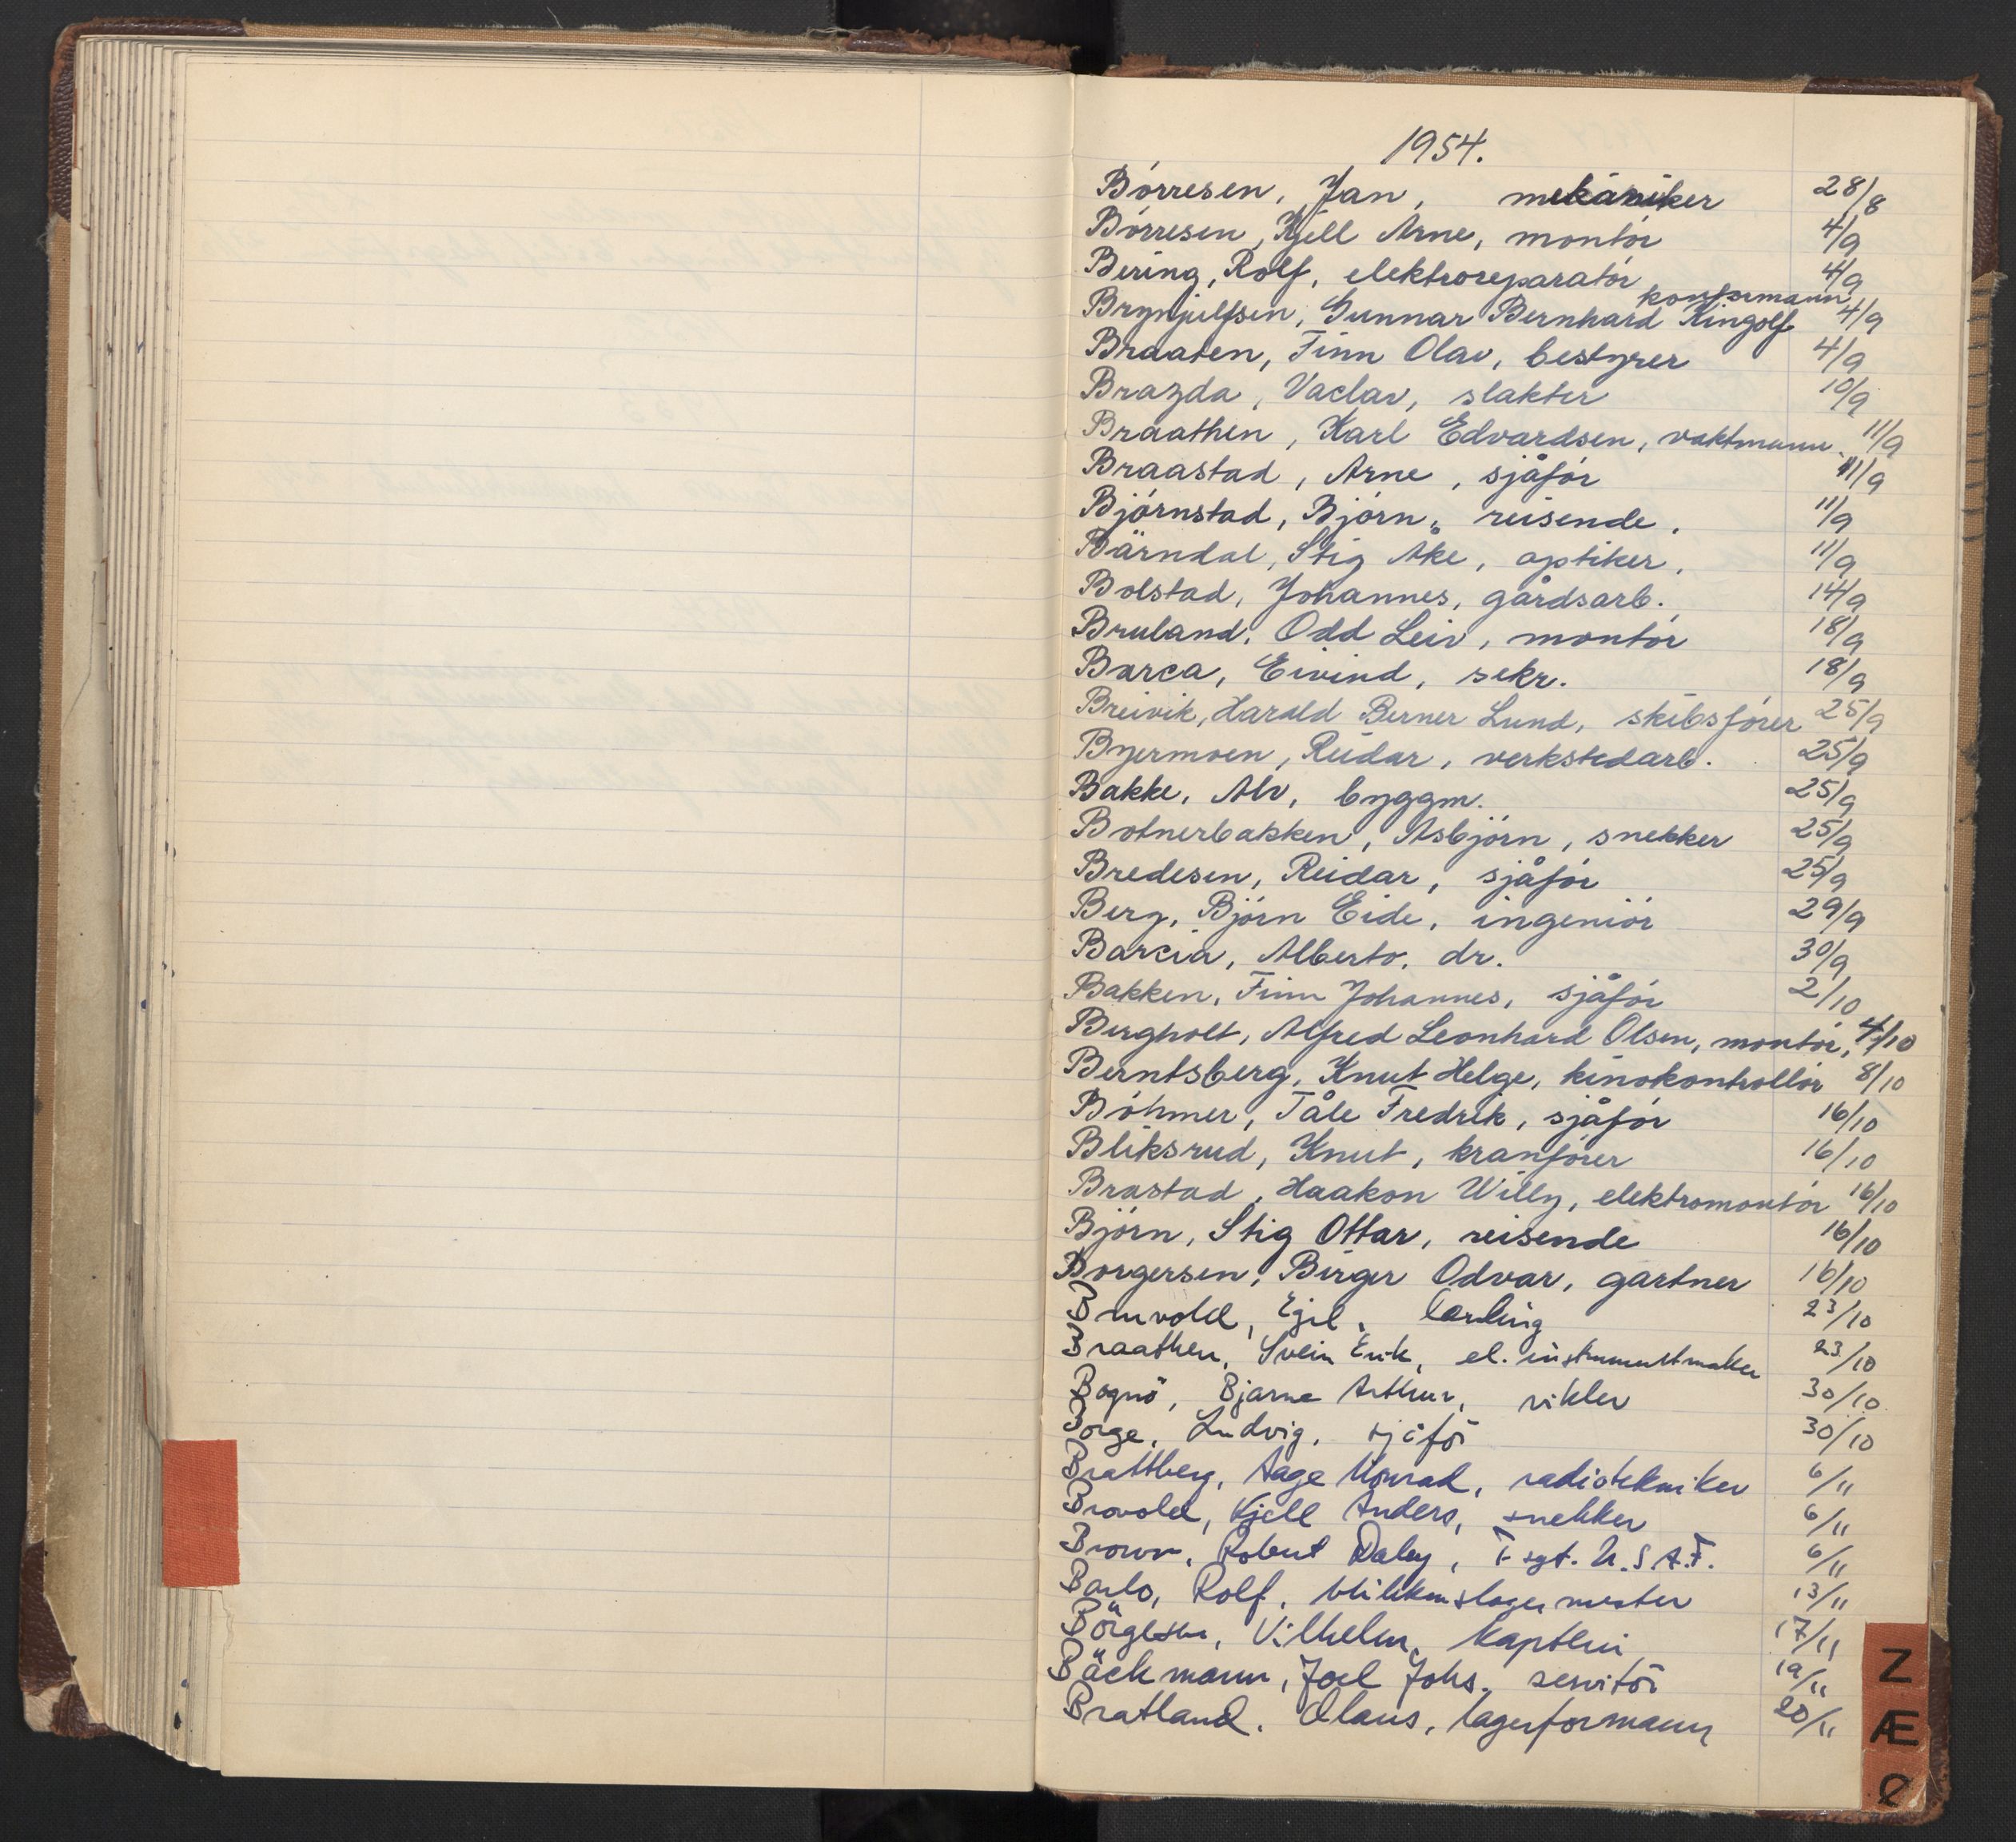 1954.
Börresen, Jan, mekaniker 28/8
Börresen, Kjell Arne, montör 4/9
Bering, Rolf, elektroreparatör 4/9
kontormann
Brynjulfsen, Gunnar Bernhard Ringolf 4/9
Braaten, Finn Olav, bestyrer 4/9
Brazda, Vaclav, slakter 10/9
Braathen, Karl Edvardsen, vaktmann. 11/9
Braastad, Arne, sjåför 11/9
Björnstad, Björn, reisende. 11/9
Bärndal, Stig Åke, optiker. 11/9
Bolstad, Johannes, gårdsarb. 14/9
Bruland, Odd Leiv, montör 18/9
Barca, Eivind, sekr. 18/9
Breivik, Harald Berner Lund, skibsförer 25/9
Byermoen, Reidar, verkstedarb. 25/9
Bakke, Alv, byggm. 25/9
Botnerbakken, Asbjörn, snekker 25/9
Bredesen, Reidar, sjåför 25/9
Berg, Björn Eide, ingeniör 29/9
Barcia, Alberto, dr. 30/9
Bakken, Finn Johannes, sjåför 2/10
Bergholt, Alfred Leonhard Olsen, montör, 4/10
Berntsberg, Knut Helge, kinokontrollör 8/10
Böhmer, Tåle Fredrik, sjåför 16/10
Bliksrud, Knut, kranförer 16/10
Brastad, Haakon Willy, elektromontör 16/10
Björn, Stig Ottar, reisende 16/10
Borgersen, Birger Odvar, gartner 16/10
Bruvold, Egil, lærling 23/10
Braathen, Svein Erik, el. instrumentmaker 23/10
Bognö, Bjarne Arthur, vikler 30/10
Borge, Ludvig, sjåför 30/10
Brattberg, Aage Konrad, radiotekniker 6/11
Brovold, Kjell Anders, snekker 6/11
Brown, Robert Daley, T-sgt. U.S.A.F. 6/11
Barbo, Rolf, blikkenslagermester 13/11
Börgesen, Vilhelm, kaptein 17/11
Bäckmann, Joel Johs. servitör 19/11
Bratland. Olaus, lagerformann 20/11
Z
Æ
Ø